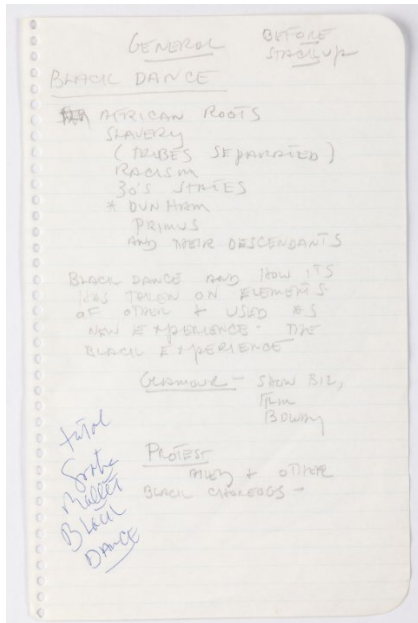 GENERAL
BEFORE
STACK UP
BLACK DANCE
AFRICAN ROOTS
SLAVERY
(TRIBES SEPARATED)
RACISM
30'S STATES
* DUNHAM
PRIMUS
AND THEIR DESCENDANTS
BLACK DANCE AND HOW ITS
HAS TAKEN ON ELEMENTS
OF OTHER & USED AS
NEW EXPERIENCE - THE
BLACK EXPERIENCE
GLAMOUR - SHOW BIZ,
FILM
BDWAY
PROTEST
AILEY & OTHER
BLACK CHOREOGS -
BLACK
DANCE